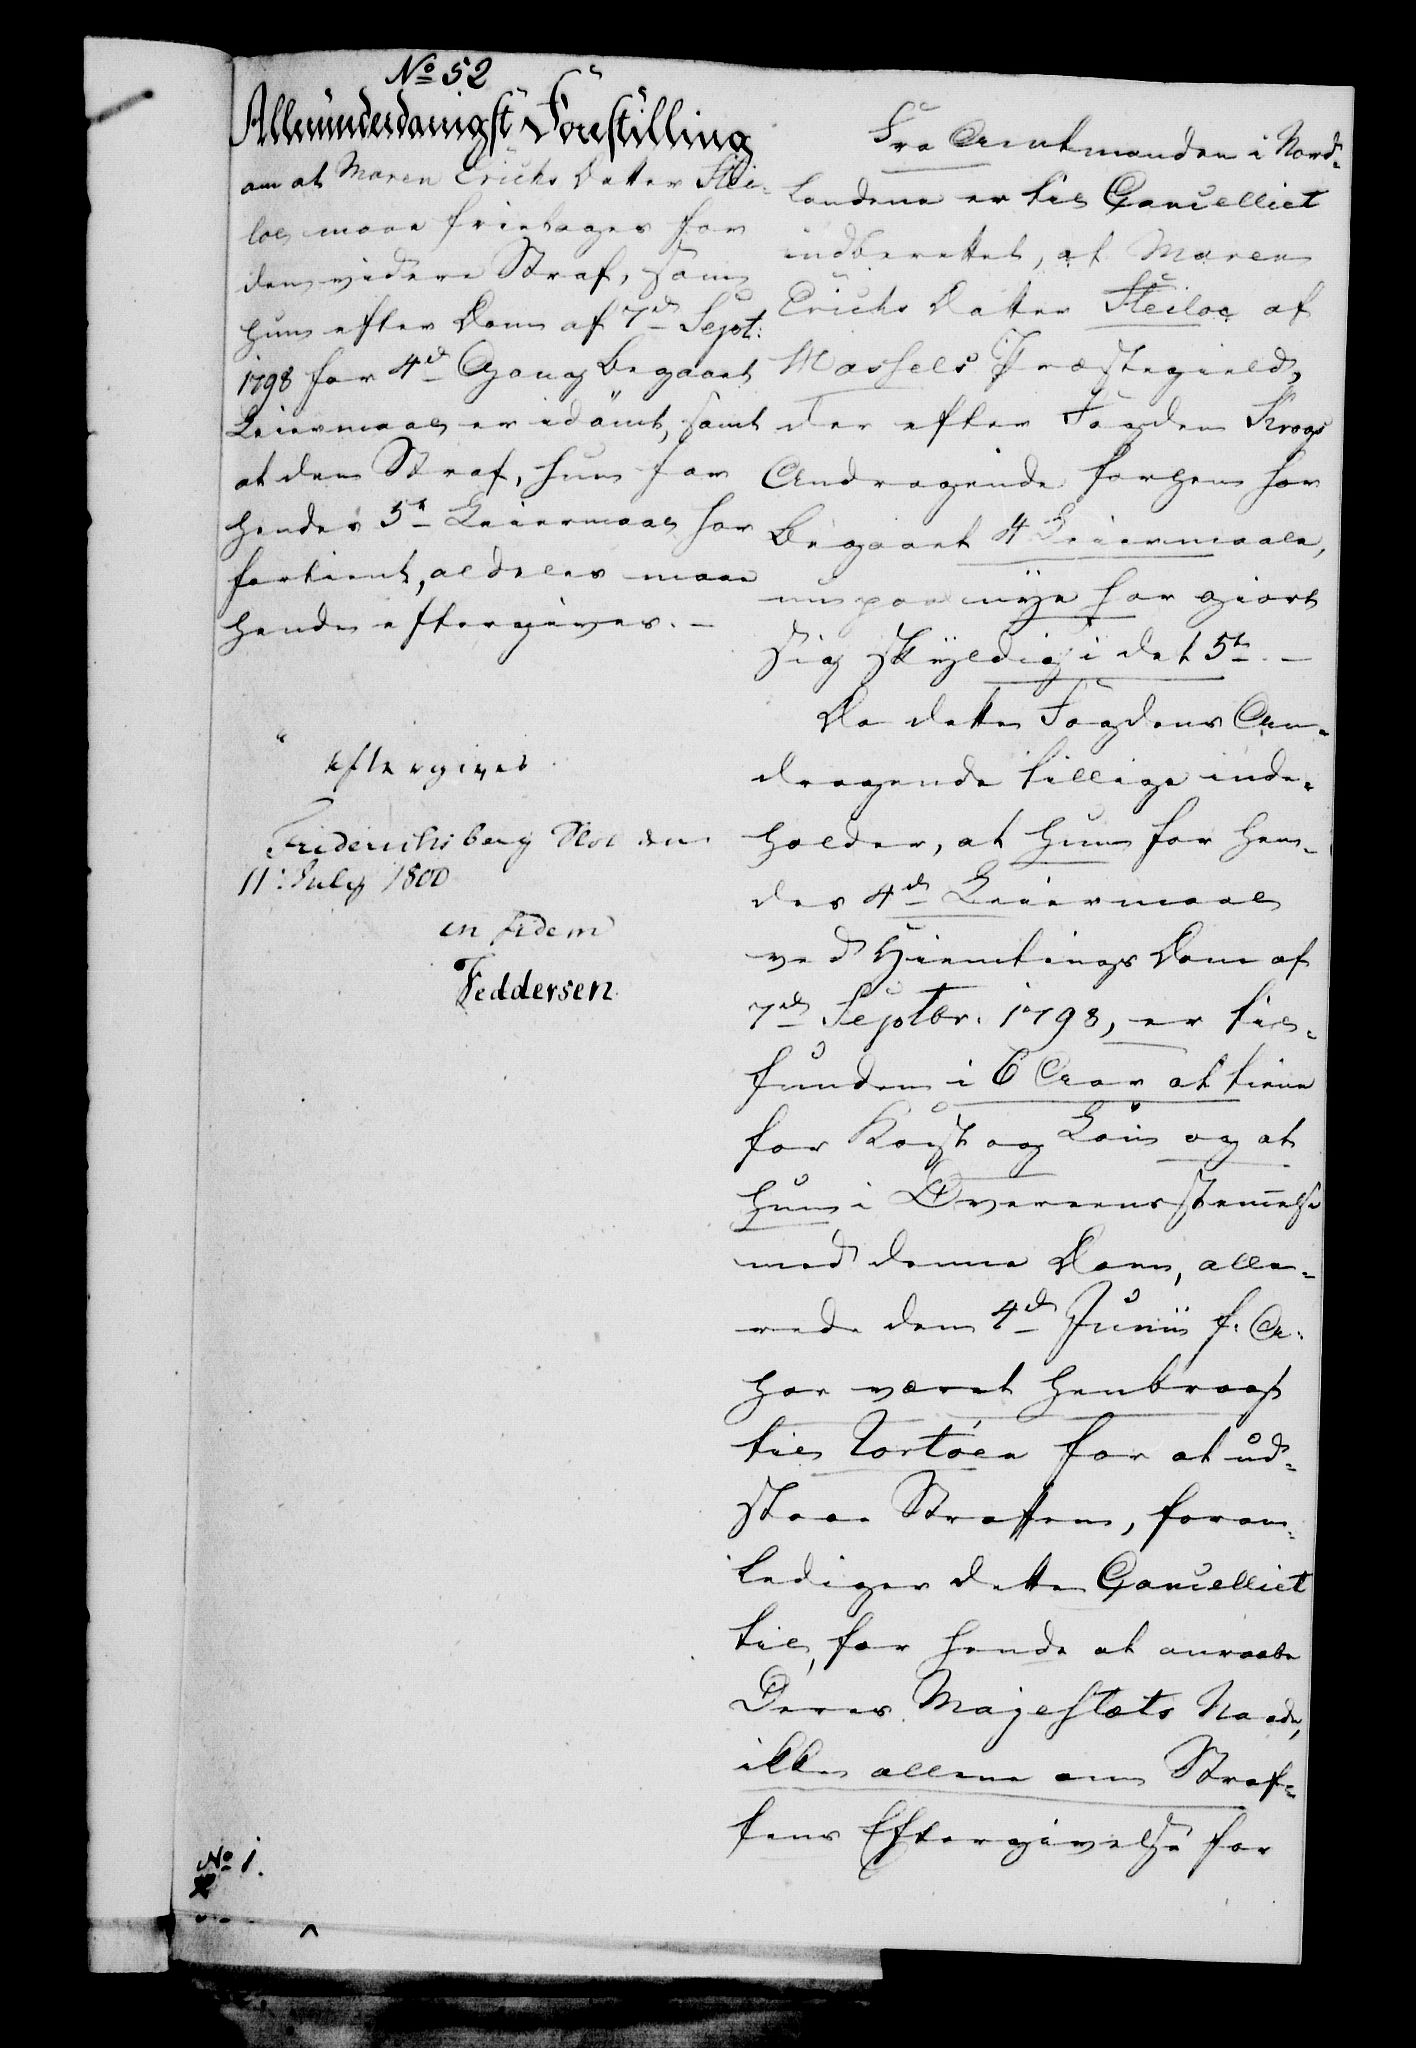 No 52
Alleründerdanigst Forestilling
om at Maren Erichs Datter Stei-
loe maae fritages for
den videre Straf, som
hun efter Dom af 7de Sept:
1798 for 4de Gang begaaet
Leiermaal er idömt, samt
at den Straf, hun for
hendes 5te Leiermaal har
fortient, aldeles maae
hende eftergives. –
eftergives
Friderichsberg Slot den
11: July 1800
in fidem
Feddersen
Fra Amtmanden i Nord-
landene er til Cancelliet
indberettet, at Maren
Erichs Datter Steiloe af
Præstegield,
der efter Fogden Krogs
Andragende forhen har
begaaet 4 Leiermaale,
nu paa nye har giort
sig skyldig i det 5te. –
Da dette Fogdens An-
dragende tillige inde-
holder, at hun for hen-
des 4de Leiermaal
ved Hiemtings Dom af
7de Septbr. 1798, er til-
funden i 6 Aar at tiene
for Kost og Løn og at
hun i Overeensstemmelse
med denne Dom, alle-
rede den 4de Junii f. A.
har været henbragt
til for at ud-
staae Straffen, foran-
lediger dette Cancelliet
til, for hende at anraabe
Deres Majestæts Naade,
ikke allene om Straf-
fens Eftergivelse for
No 1.